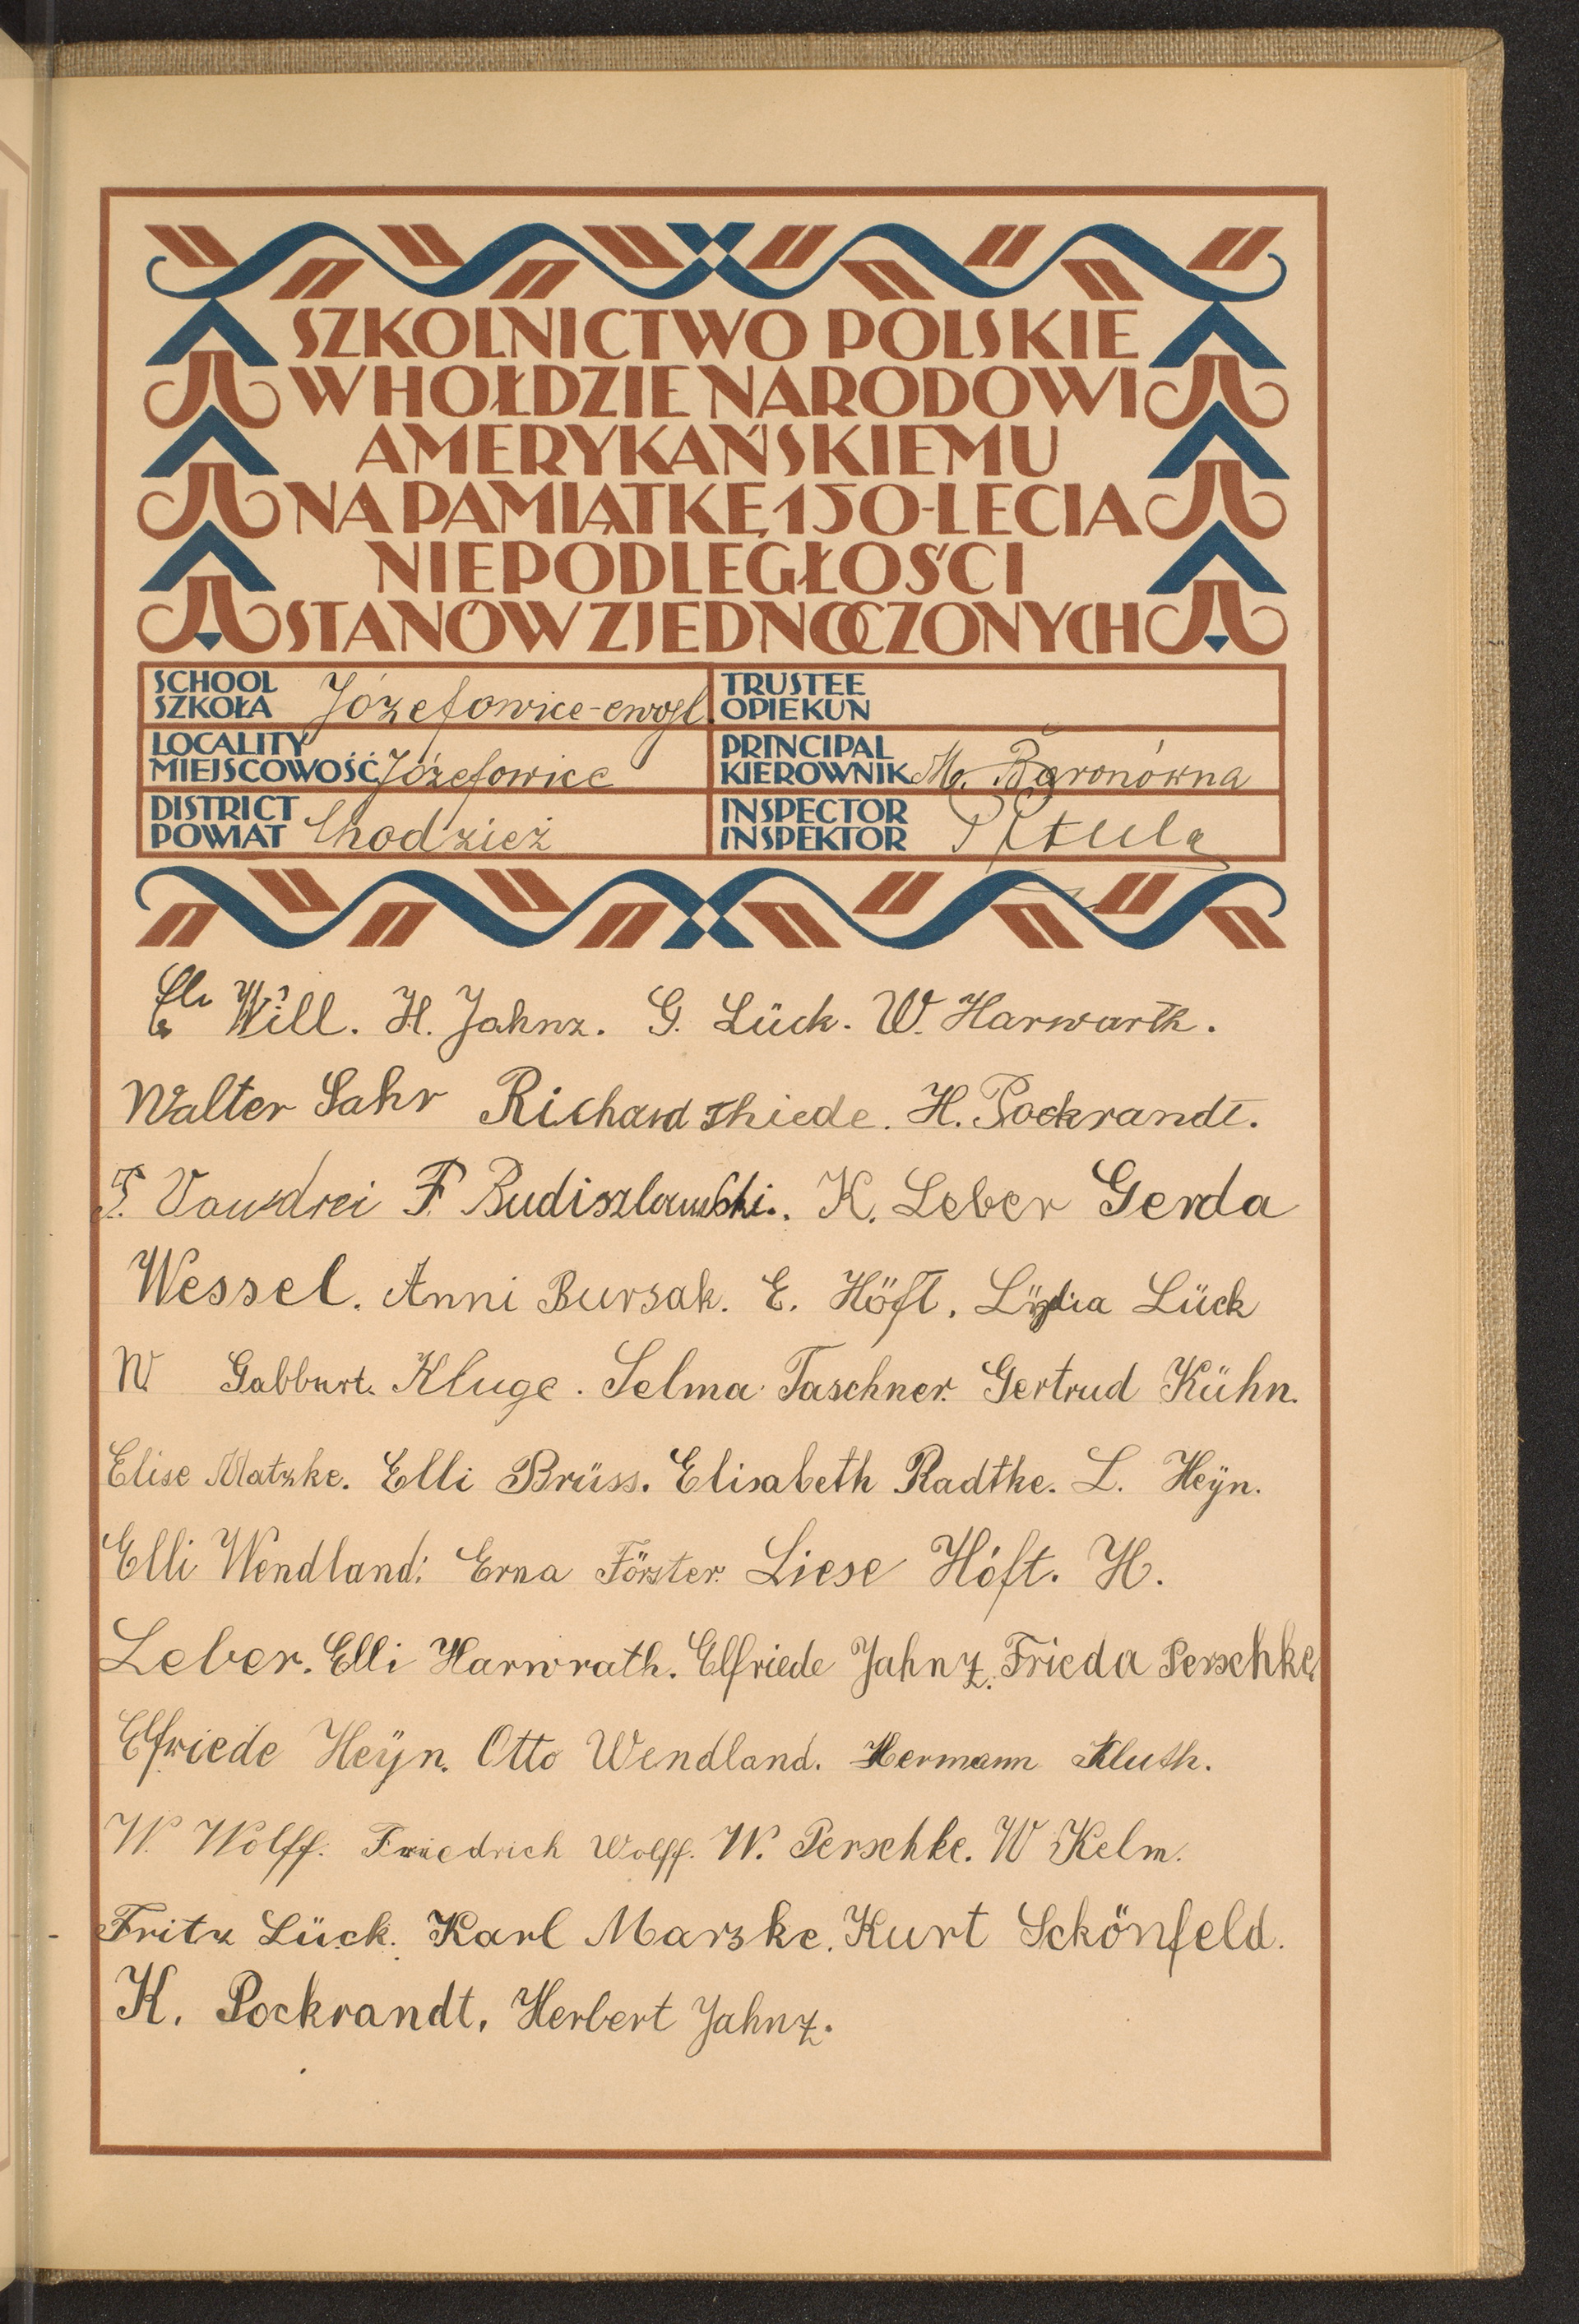 SZKOLNICTWO POLSKIE
W HOŁDZIE NARODOWI
AMERYKAŃSKIEMU
NA PAMIĄTKĘ 150-LECIA
NIEPODLEGŁOŚCI
STANÓW ZJEDNOCZONYCH
SCHOOL
SZKOŁA Józefowice-ewgl.
TRUSTEE
OPIEKUN
LOCALITY
MIEJSCOWOŚĆ Józefowice
PRINCIPAL
KIEROWNIK M. Baronówna
DISTRICT
POWIAT Chodzież
INSPECTOR
INSPEKTOR
Will. H. Jahnz. G. Lück. W. Harwarth.
Walter Sahr Richard Thiede. H. Pockrandt.
F. Budiszlowski.. K. Leber Gerda
Wessel. Anni Bursak. E. Höft. Lydia Lück
W. Gabburt. Kluge. Selma Taschner. Gertrud Kühn.
Elise Matzke. Elli Brüss. Elisabeth Radtke. L. Heÿn.
Elli Wendland. Erna Förster. Liese Höft. H.
Leber. Elli Harwrath. Elfriede Jahnz. Frieda Perschke
Elfriede Heÿn. Otto Wendland. Hermann Kluth.
W. Wolff. Friedrich Wolff. W. Perschke. W Kelm.
Fritz Lück. Karl Marzke. Kurt Schönfeld.
K. Pockrandt. Herbert Jahnz.